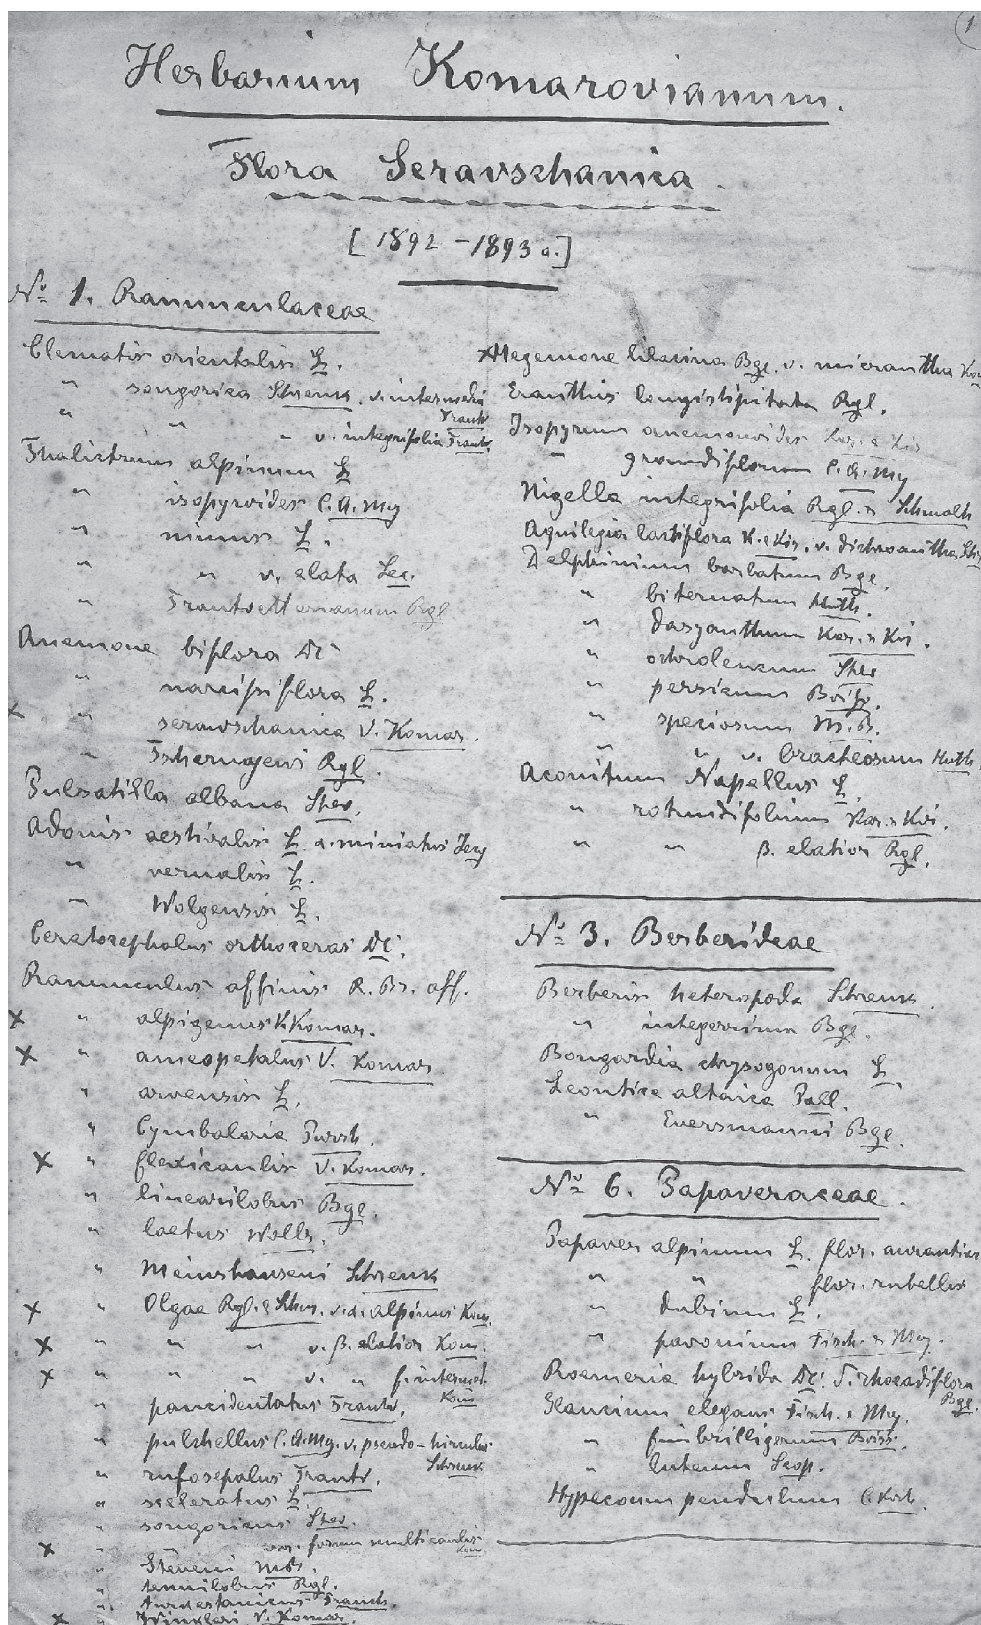 1
Herbarium Komarovianum.
Flora Seravschanica.
[1892–1893 a.]
№ 1. Ranunculaceae
Clematis orientalis L.
" songorica Schrenk. v. intermedia Trautv
" " " v. integrifolia Trautv.
Thalictrum alpinum L
" isopyroides C.A.Mey
" minus L.
" " v. elata Lec.
" Trautvetterianum Rgl
Anemone biflora DC
" narcissiflora L.
" seravschanica V. Komar.
" Tschernjaewi Rgl.
Pulsatilla albana Stev.
Adonis aestivalis L. a. miniatus
" vernalis L.
" Wolgensis L.
Ceratocephalus orthoceras DC.
Ranunculus affinis R. Br. aff.
x " alpigenus V. Komar.
x " aneopetalus V. Komar
" arvensis L.
" Cymbalaria Pursh.
x " flexicaulis V. Komar.
" linearilobus Bge.
" laetus Wall.
" Meinshauseni Schrenk
x " Olgae Rgl. & Schm. v. α. alpinus Kom.
x " " " v. β. elatior Kom.
x " " " v. "
Kom
" paucidentatus Trautv.
" pulchellus C.A.Mey. v. pseudo-hirculus
Schrenk
" rufosepalus Franch.
" sceleratus L.
" songoricus Schr.
x " forma multicaulis
" Steveni MB.
" tenuilobus Rgl.
" turkestanicus Franch.
x " Winkleri V. Komar.
x Hegemone lilacina Bge. v. micrantha Kom
Eranthis longistipitata Rgl.
Isopyrum anemonoides Kar. & Kir
– grandiflorum C.A.Mey
Nigella integrifolia Rgl. & Schmalh
Aquilegia lactiflora K. & Kir. v. dichroantha
Delphinium barbatum Bge.
" biternatum Huth.
" dasyanthum Kar. & Kir.
" ochroleucum Stev
" persicum Boiss.
" speciosum M.B.
" " v. bracteosum Huth
Aconitum Napellus L.
" rotundifolium Kar. & Kir.
" " β. elatior Rgl.
№ 3. Berberideae
Berberis heteropoda Schrenk.
" integerrima Bge.
Bongardia chrysogonum L.
Leontice altaica Pall.
" Eversmanni Bge.
№ 6. Papaveraceae.
Papaver alpinum L. flor. aurantiac
" " flor. rubellis
" dubium L.
" pavoninum Fisch. & Mey.
Roemeria hybrida DC. rhoeadiflora
Bge.
Glaucium elegans Fisch. & Mey.
" fimbrilligerum Boiss.
" luteum Scop.
Hypecoum pendulum